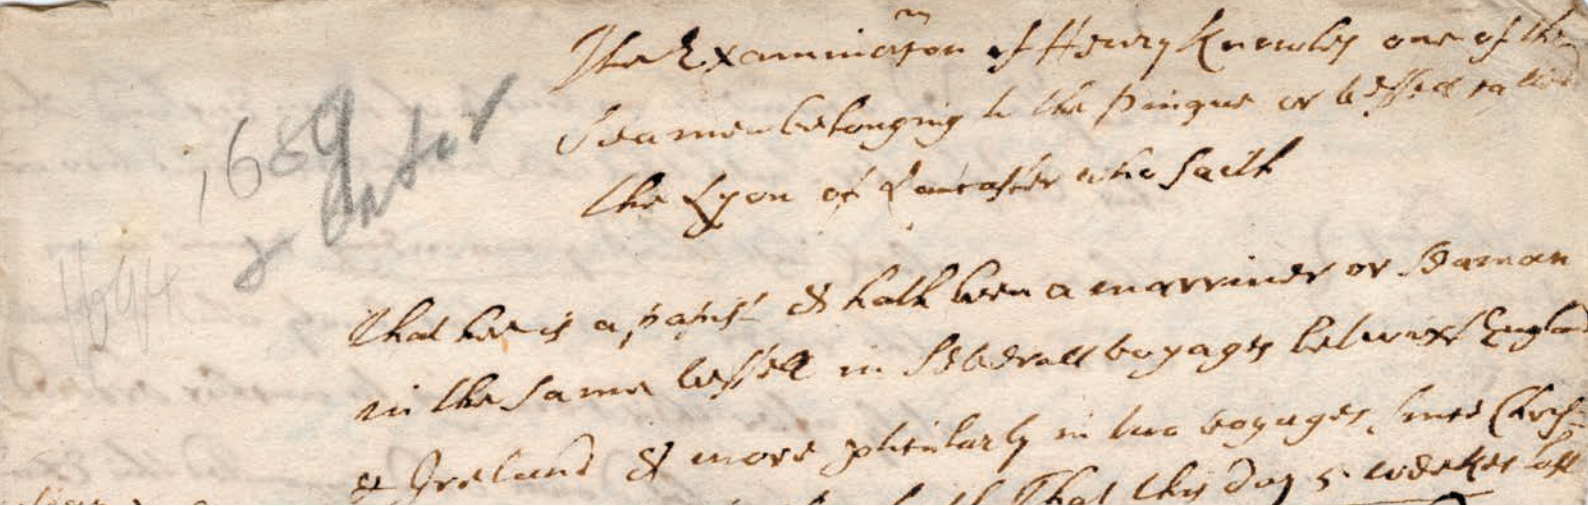 The Examinaton of Henry Knowles one of the
Seamen belonging to the Pinque or vessell called
the Lyon of Lancaster who saith
1689
That hee is a papist & hath been a marriner or Seaman
in the same vessell in Severall voyages betwixt England
& Ireland & more pticularly in two voyages since Christ
That this day 5 weekes last